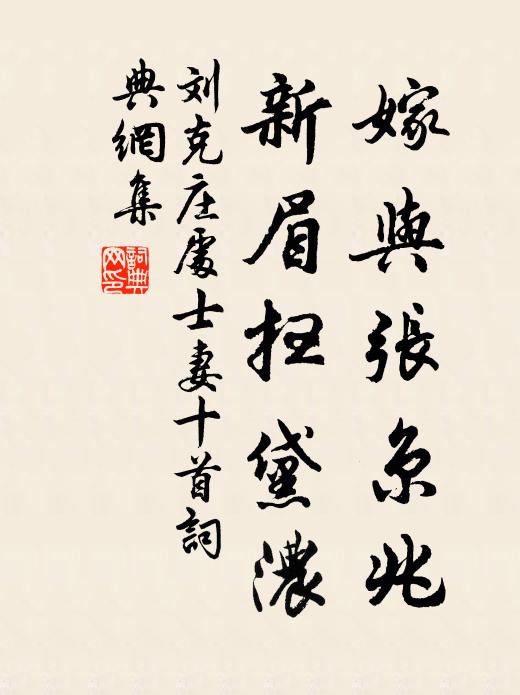 嫁與張京兆
新眉扫黛濃
刘克庄處士妻十首詞
典網集
詞典
网印